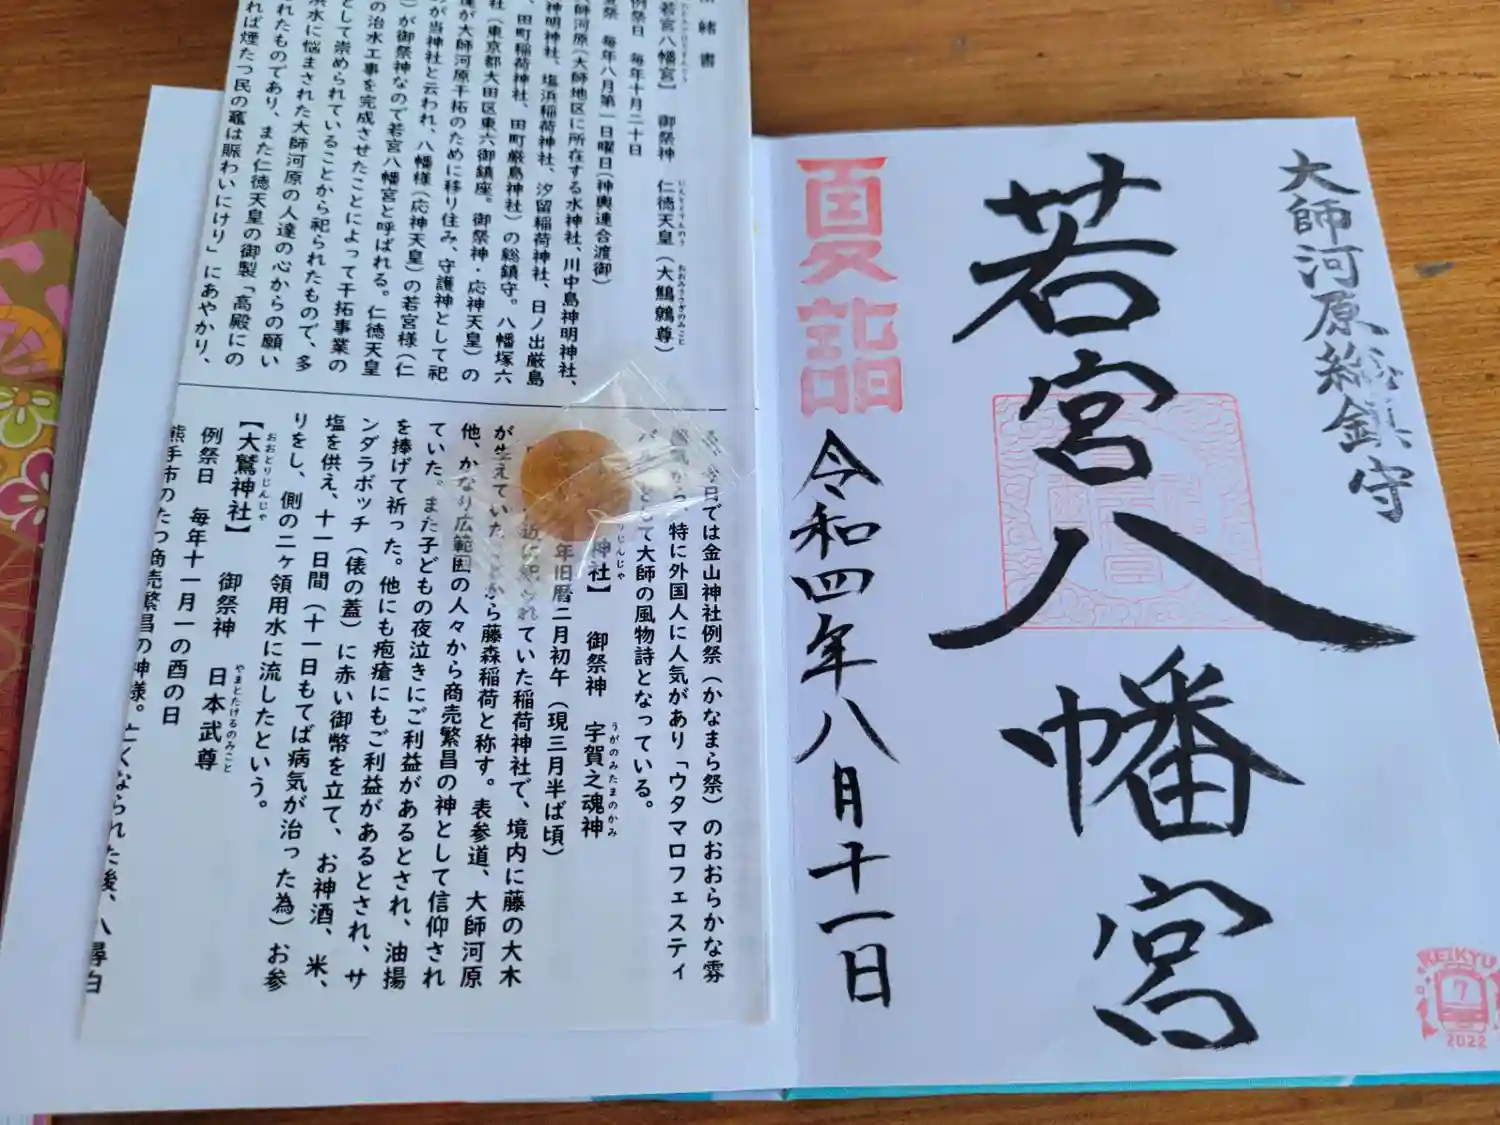 大師河原総鎮守
若宮八幡宮
夏詣
令和四年八月十一日
KEIKYU
7
2022
緒書
若宮八幡宮】 御祭神 仁徳天皇（大鷦鷯尊）
にんとくてんのう
おおみうさぎのみこと
例祭日 毎年十月二十日
毎年八月第一日曜日（神輿連合渡御）
師河原（大師地区に所在する水神社、川中島神明神社、
神明神社、塩浜稲荷神社、汐留稲荷神社、日ノ出厳島
、田町稲荷神社、田町厳島神社）の総鎮守。八幡塚六
社（東京都大田区東六御鎮座。御祭神・応神天皇）の
達が大師河原干拓のために移り住み、守護神として祀
が当神社と云われ、八幡様（応神天皇）の若宮様（仁
）が御祭神なので若宮八幡宮と呼ばれる。仁徳天皇
の治水工事を完成させたことによって干拓事業の
として崇められていることから祀られたもので、多
洪水に悩まされた大師河原の人達の心からの願い
れたものであり、また仁徳天皇の御製「高殿にの
れば煙たつ民の竈は賑わいにけり」にあやかり、
今日では金山神社例祭（かなまら祭）のおおらかな雰
特に外国人に人気があり「ウタマロフェスティ
として大師の風物詩となっている。
神社】 御祭神 宇賀之魂神
りじんじゃ
うがのみたまのかみ
年旧暦二月初午（現三月半ば頃）
ていた稲荷神社で、境内に藤の大木
が生えていた から藤森稲荷と称す。表参道、大師河原
他、かなり広範囲の人々から商売繁昌の神として信仰され
ていた。また子どもの夜泣きにご利益があるとされ、油揚
を捧げて祈った。他にも疱瘡にもご利益があるとされ、サ
ンダラボッチ（俵の蓋）に赤い御幣を立て、お神酒、米、
塩を供え、十一日間（十一日もてば病気が治った為）お参
りをし、側の二ヶ領用水に流したという。
【大鷲神社】 御祭神 日本武尊
おおとりじんじゃ
やまとたけるのみこと
例祭日 毎年十一月一の酉の日
熊手市のたつ商売繁昌の神様。亡くなられた後、八尋白